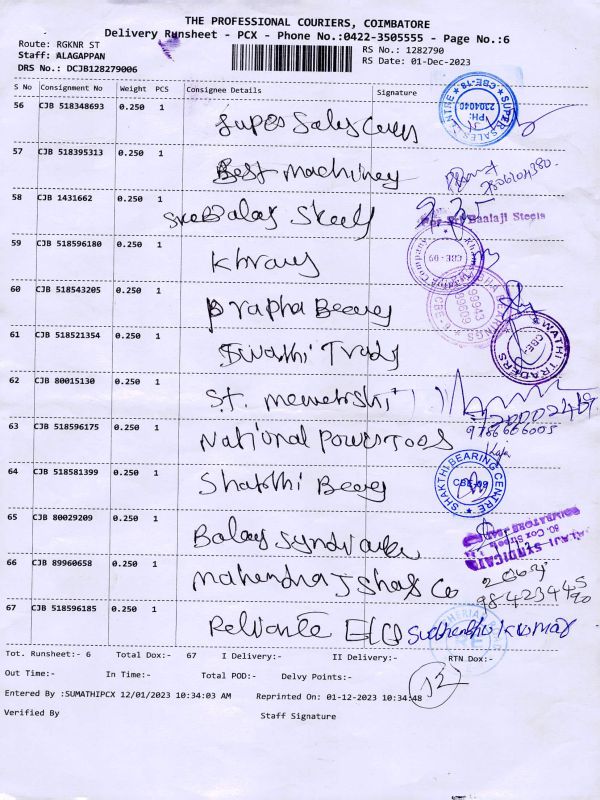 THE PROFESSIONAL COURIERS, COIMBATORE
Delivery Runsheet - PCX - Phone No.:0422-3505555 - Page No.:6
Route: RGKNR ST RS No.: 1282790
Staff: ALAGAPPAN RS Date: 01-Dec-2023
DRS No.: DCJB128279006
S No Consignment No Weight PCS Consignee Details Signature
56 CJB 518348693 0.250 1 Super Sales
57 CJB 518395313 0.250 1 Best machinery
58 CJB 1431662 0.250 1 Sree Balaji Steels
For Sri Baalaji Steels
59 CJB 518596180 0.250 1
CBE-09
60 CJB 518543205 0.250 1 Prapha
61 CJB 518521354 0.250 1 Swathi
SWATHI TRADERS
62 CJB 80015130 0.250 1 St.
9786666005
63 CJB 518596175 0.250 1 National Powertools
64 CJB 518581399 0.250 1 Shakthi
SHAKTHI BEARING CENTRE
CBE-09
65 CJB 80029209 0.250 1 Balaji
66 CJB 89960658 0.250 1 Mahendra J Shah Co
98423445
90
67 CJB 518596185 0.250 1 Reliante
Tot. Runsheet:- 6 Total Dox:- 67 I Delivery:- II Delivery:- RTN Dox:-
Out Time:- In Time:- Total POD:- Delvy Points:-
12
Entered By :SUMATHIPCX 12/01/2023 10:34:03 AM Reprinted On: 01-12-2023 10:34:48
Verified By Staff Signature